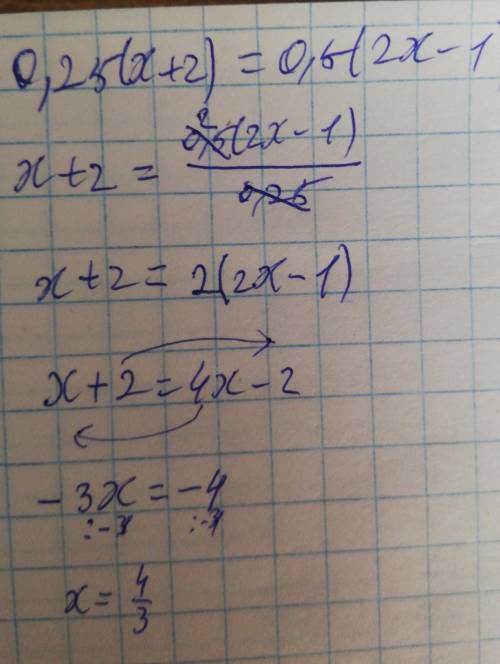 0,25(x+2) = 0,5(2x-1
x+2 = 0,5(2x-1) / 0,25
2
x+2 = 2(2x-1)
x+2 = 4x-2
-3x = -4
:-3 :-3
x = 4/3